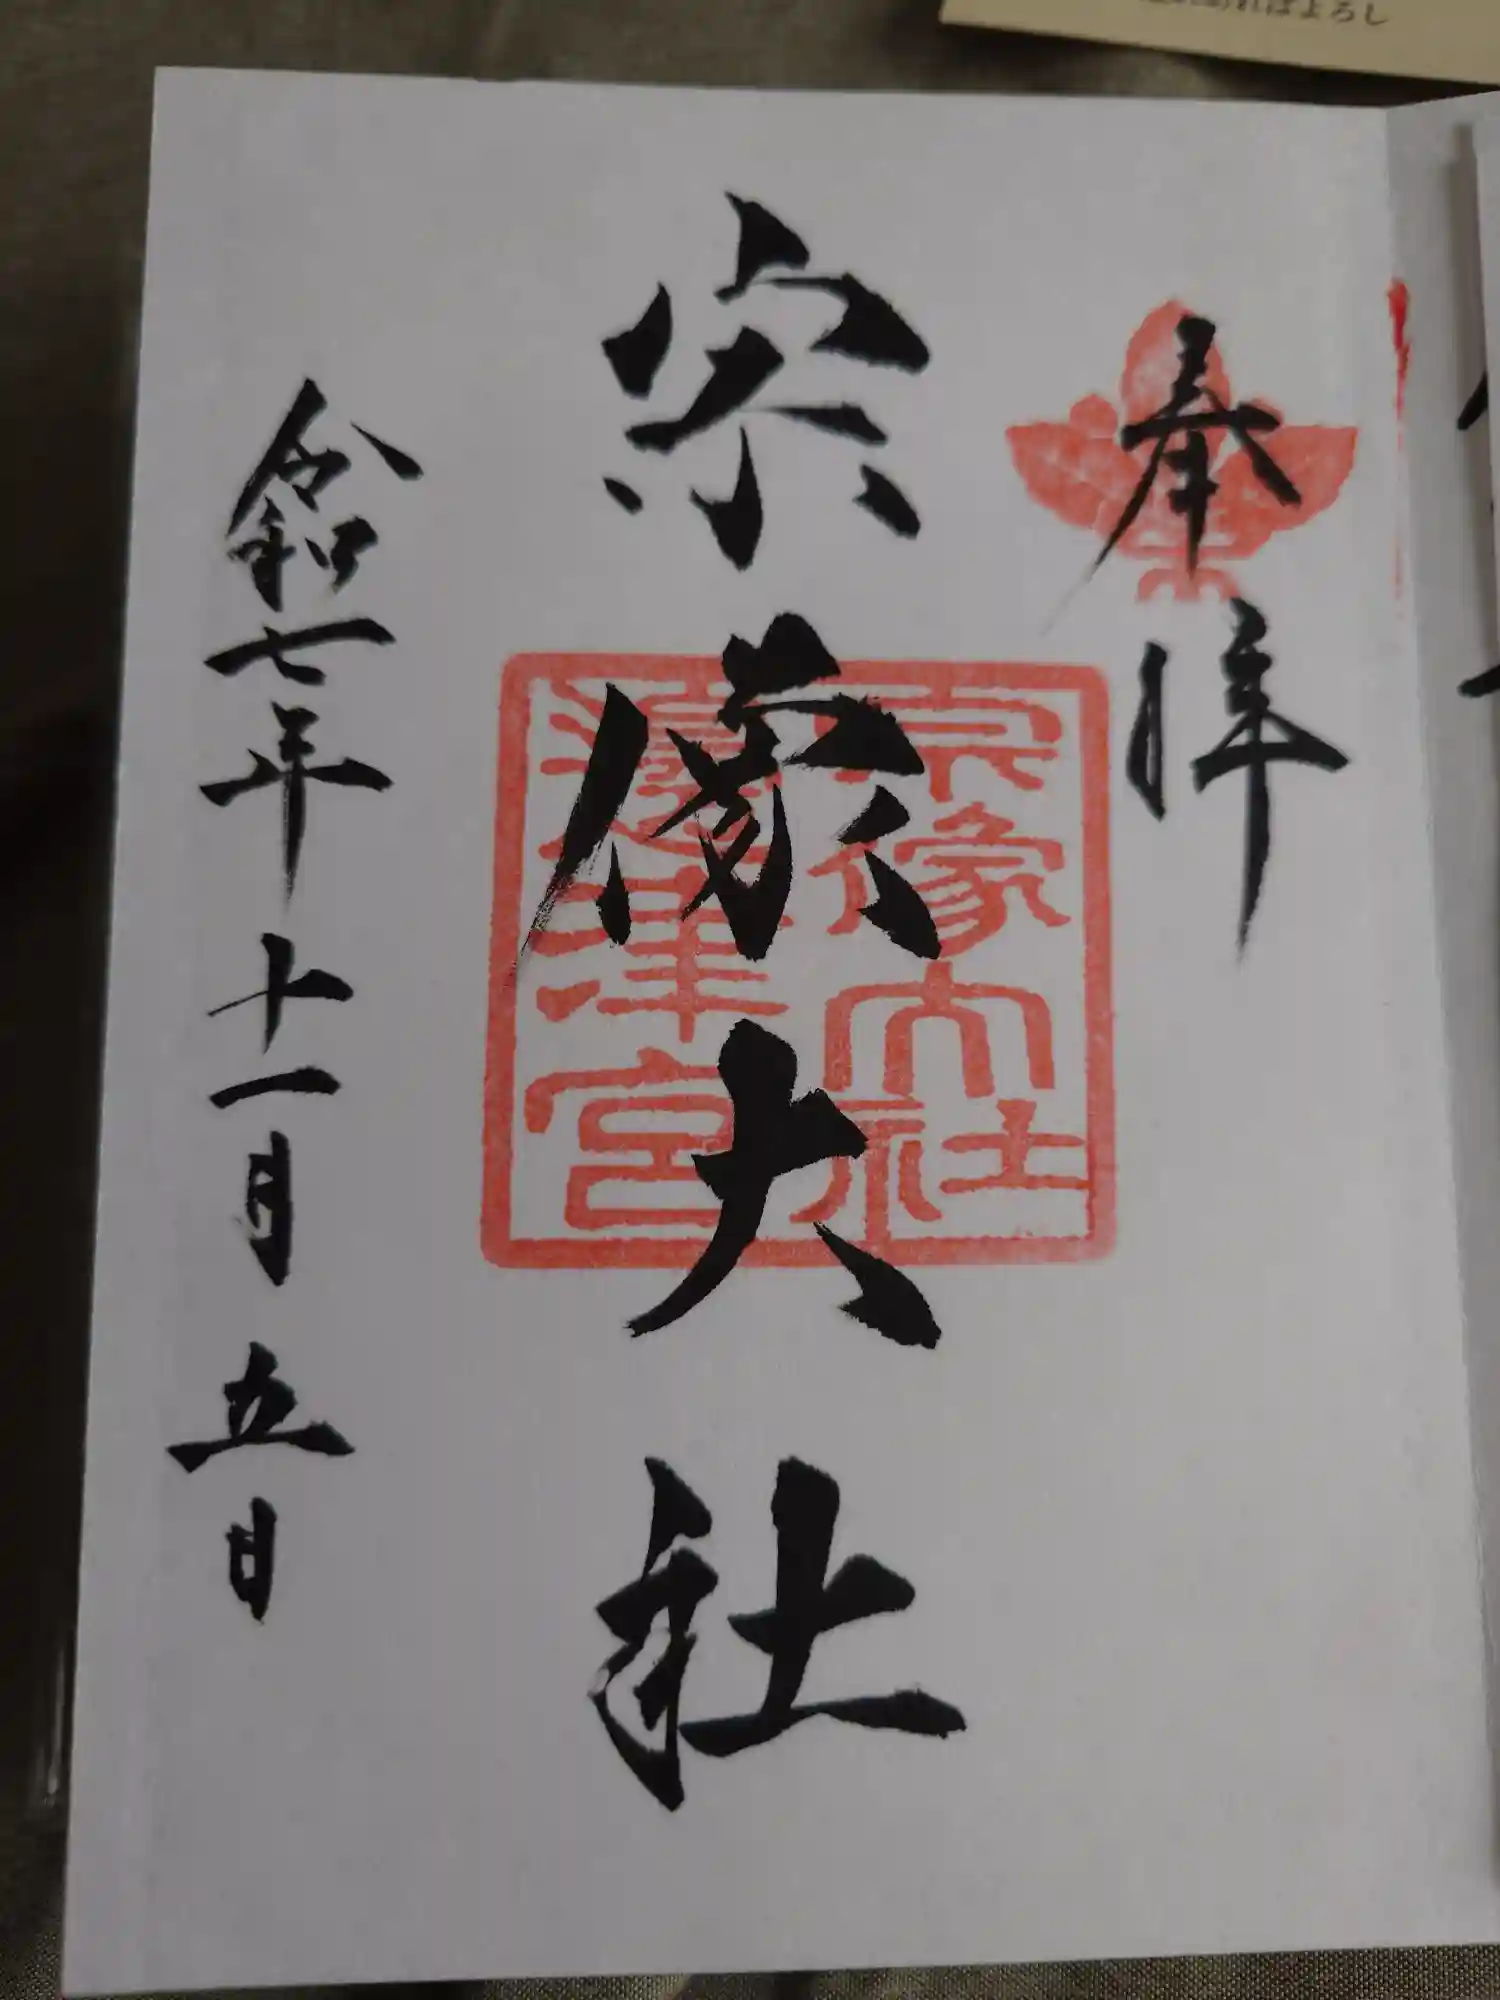 ればよろし
奉拝
宗像大社
宗像大社
邊津宮
令和七年十一月五日